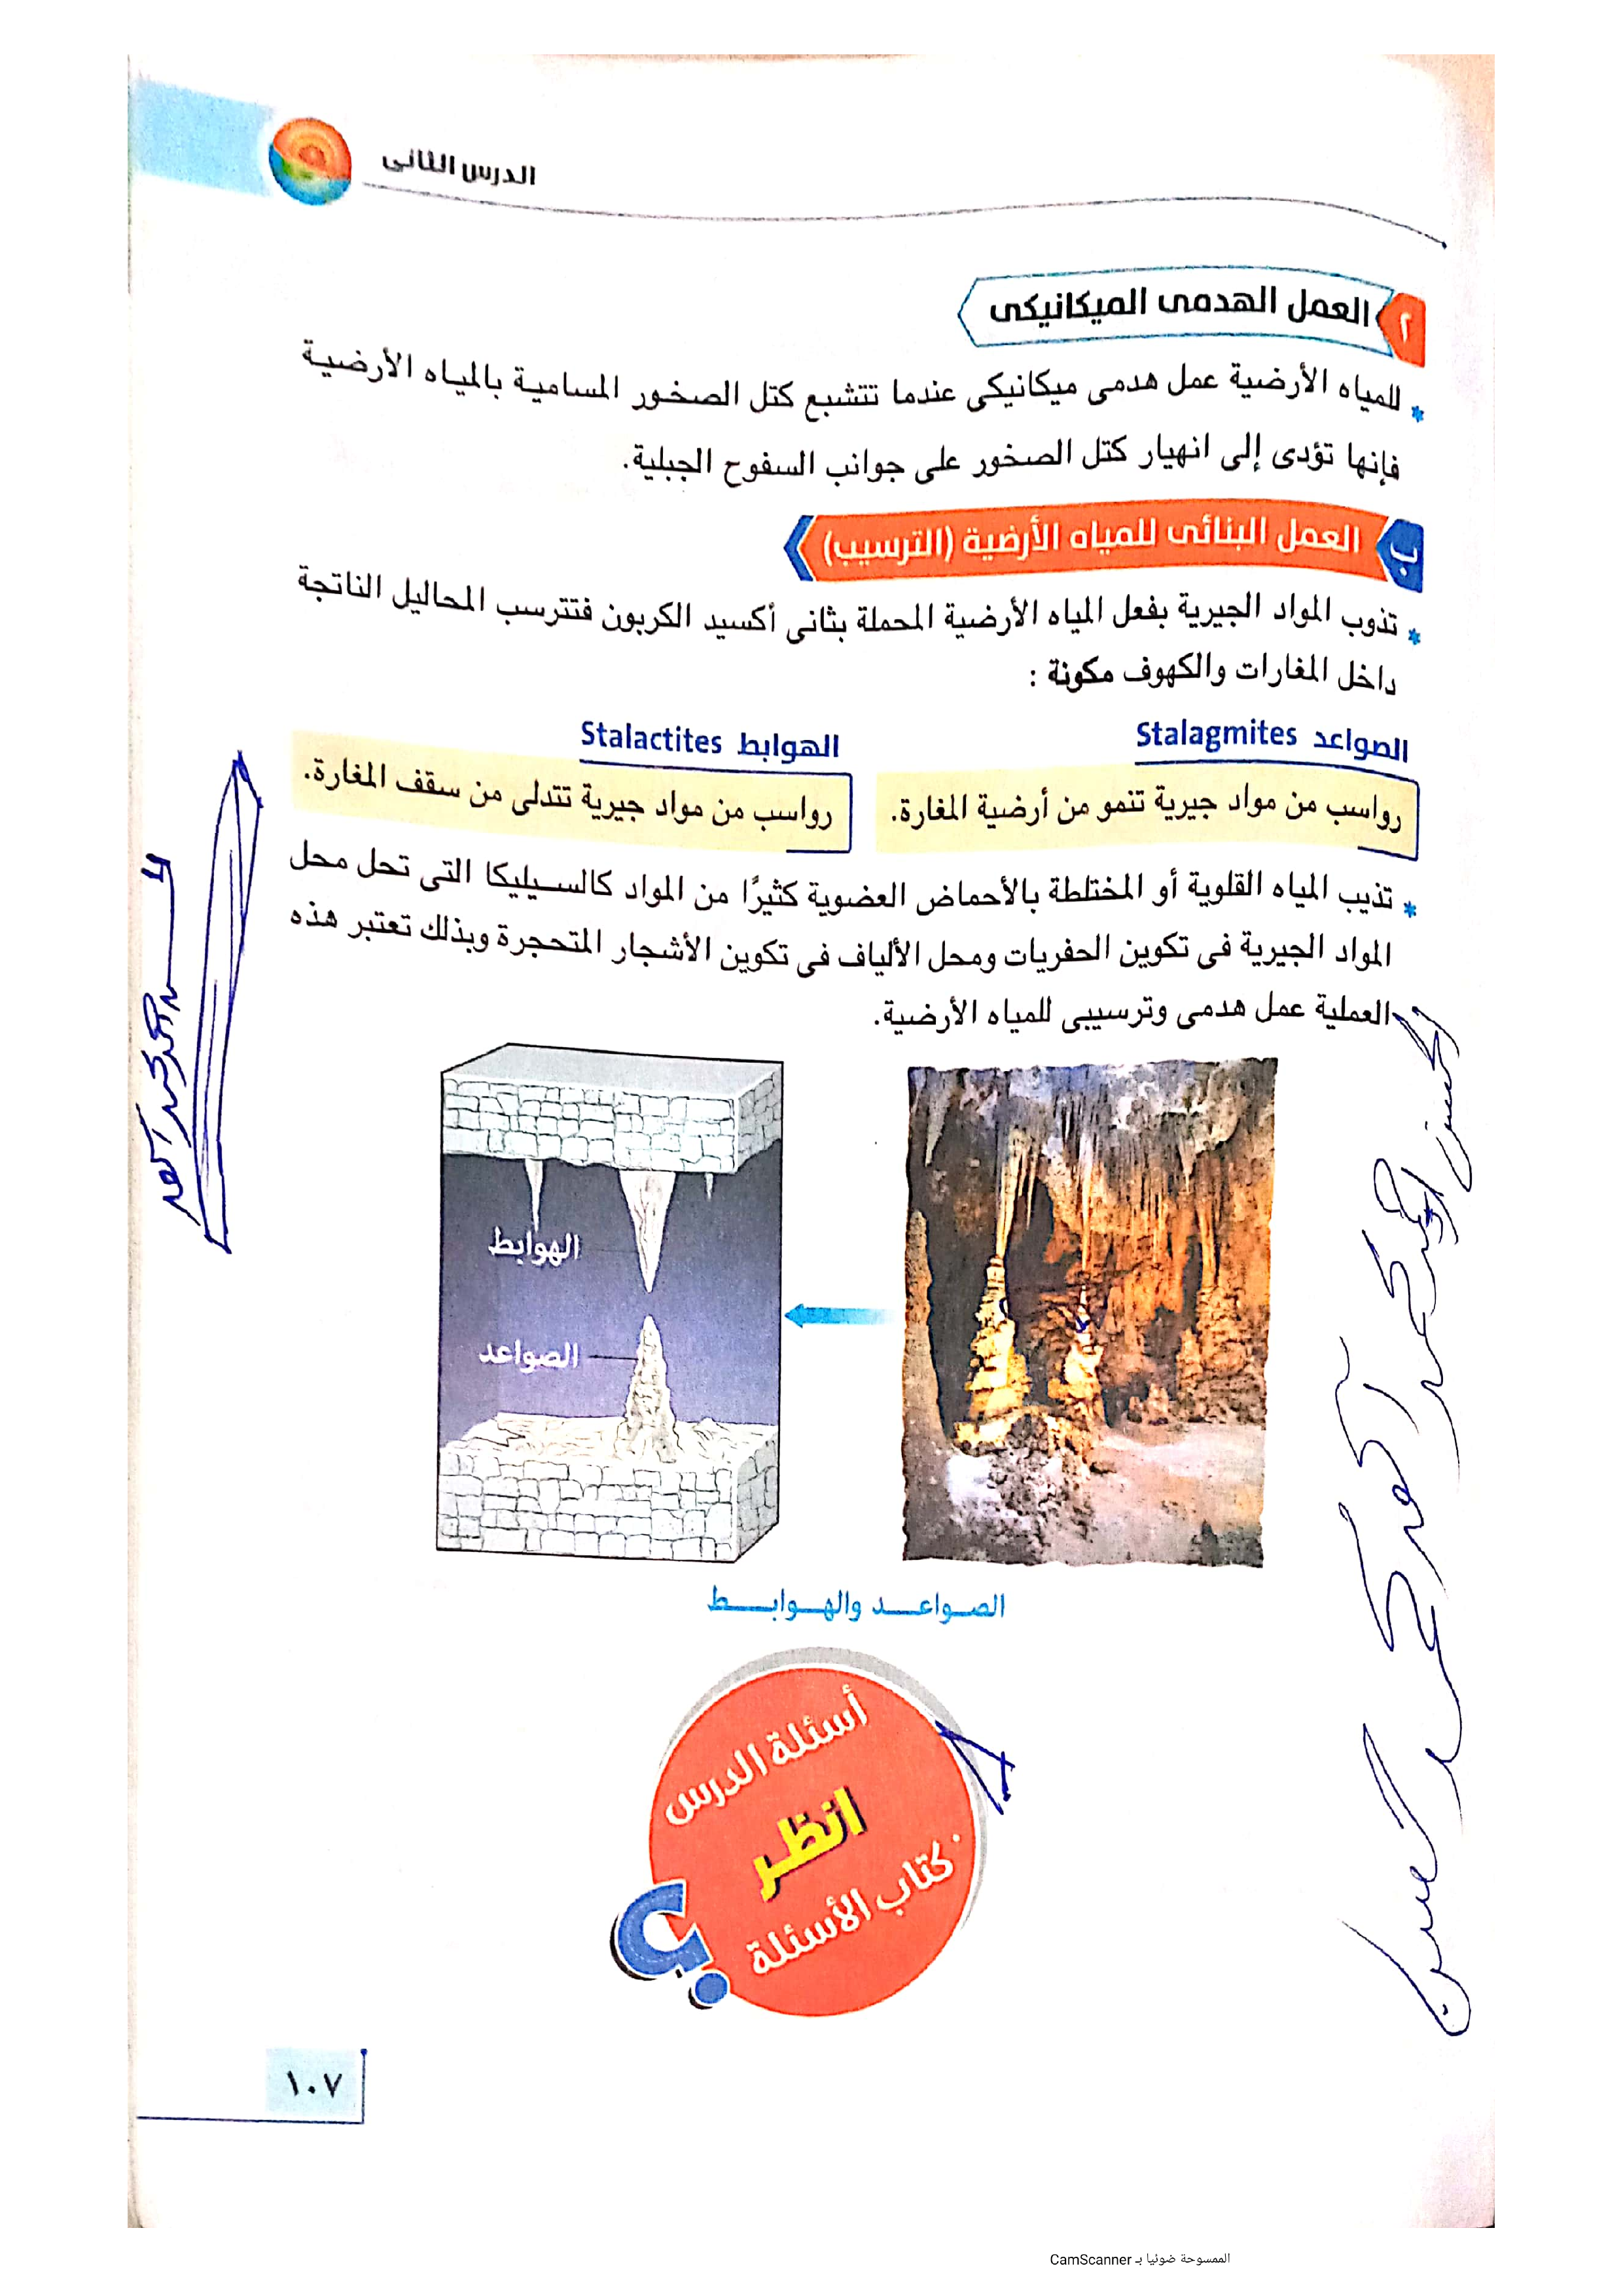 الدرس الثانى
٢ العمل الهدمى الميكانيكى
* للمياه الأرضية عمل هدمى ميكانيكى عندما تتشبع كتل الصخور المسامية بالمياه الأرضية
فإنها تؤدى إلى انهيار كتل الصخور على جوانب السفوح الجبلية.
ب العمل البنائى للمياه الأرضية (الترسيب)
* تذوب المواد الجيرية بفعل المياه الأرضية المحملة بثانى أكسيد الكربون فتترسب المحاليل الناتجة
داخل المغارات والكهوف مكونة :
الصواعد Stalagmites
رواسب من مواد جيرية تنمو من أرضية المغارة.
الهوابط Stalactites
رواسب من مواد جيرية تتدلى من سقف المغارة.
* تذيب المياه القلوية أو المختلطة بالأحماض العضوية كثيرًا من المواد كالسيليكا التى تحل محل
المواد الجيرية فى تكوين الحفريات ومحل الألياف فى تكوين الأشجار المتحجرة وبذلك تعتبر هذه
العملية عمل هدمى وترسيبى للمياه الأرضية.
الهوابط
الصواعد
الصواعد والهوابط
أسئلة الدرس
انظر
كتاب الأسئلة
؟
١٠٧
الممسوحة ضوئيا بـ CamScanner